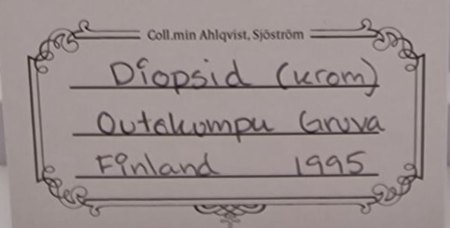 Coll.min Ahlqvist, Sjöström
Diopsid (krom)
Outokumpu Gruva
Finland 1995